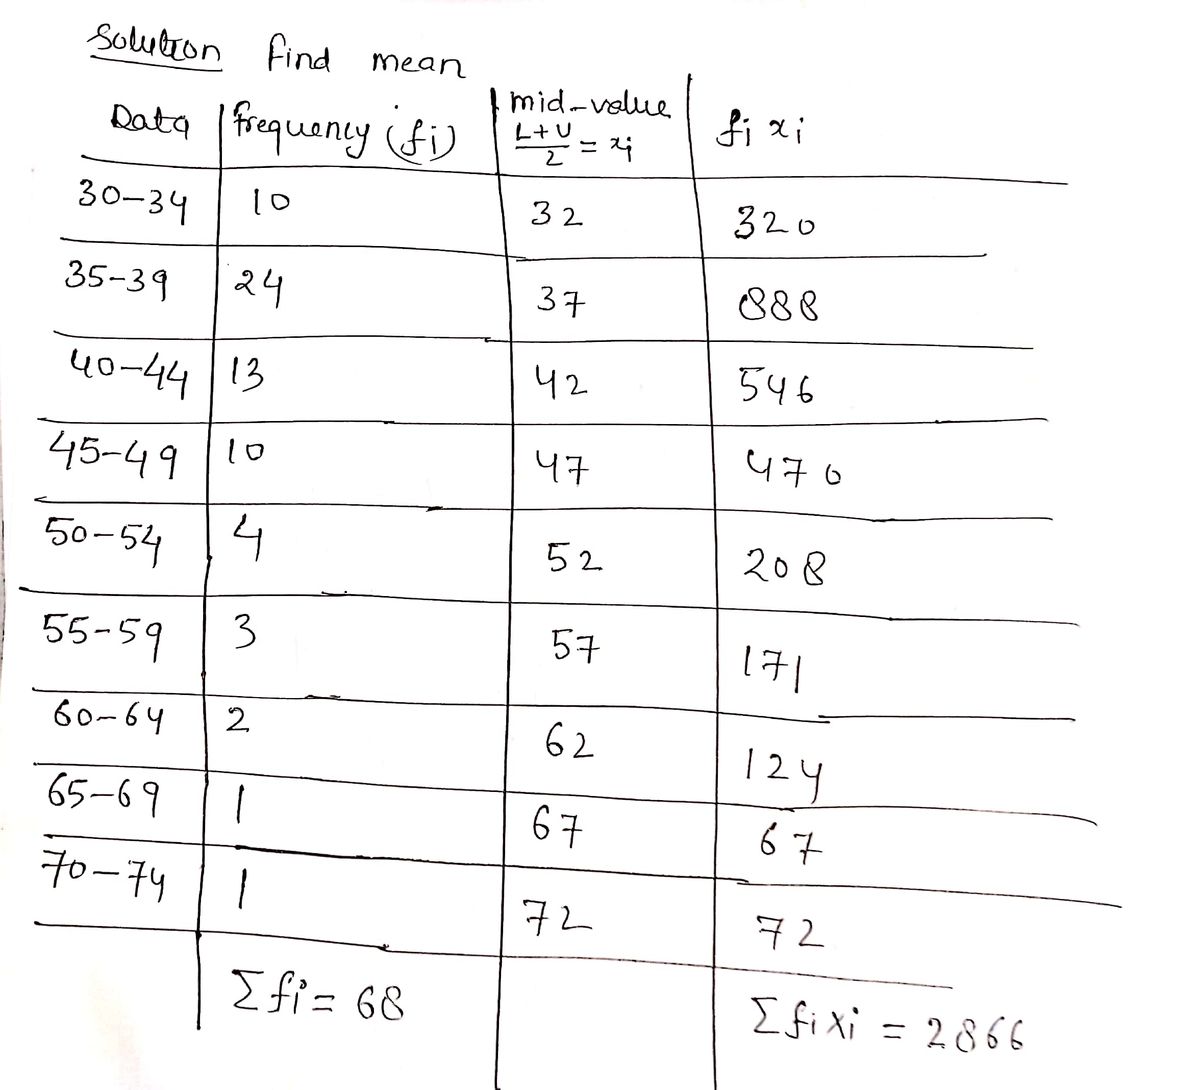 Solution Find mean
Data frequency (fi) mid-value L+U/2 = xi fi xi
30-34 10 32 320
35-39 24 37 888
40-44 13 42 546
45-49 10 47 470
50-54 4 52 208
55-59 3 57 171
60-64 2 62 124
65-69 1 67 67
70-74 1 72 72
Σfi = 68 Σfixi = 2866